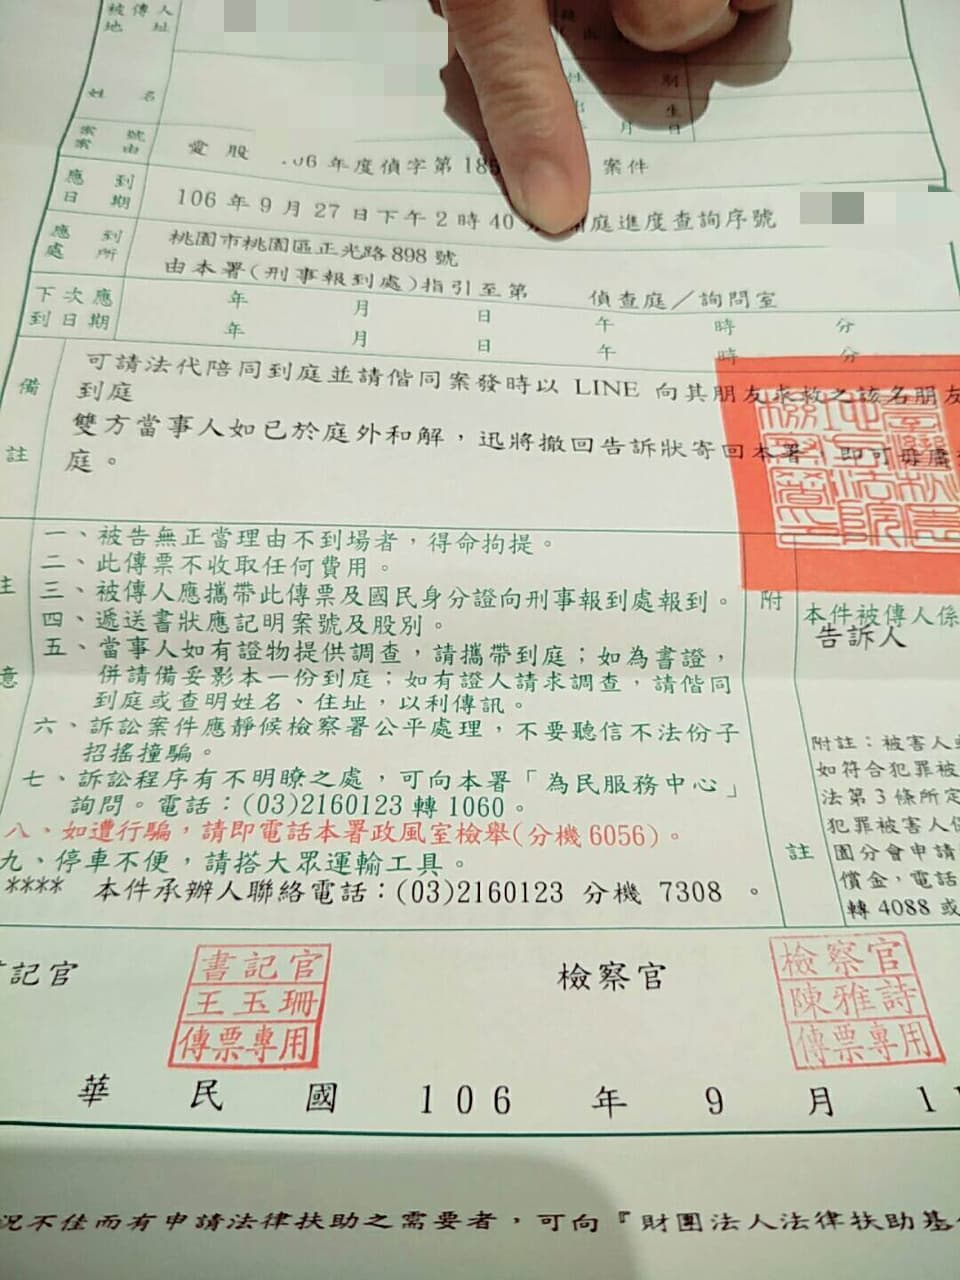 被傳人
地址
姓名
性別
出生
月日
案號
案由
愛股 106年度偵字第185 案件
應到
日期
106年9月27日下午2時40分 開庭進度查詢序號
應到
處所
桃園市桃園區正光路898號
由本署(刑事報到處)指引至第 偵查庭/詢問室
下次應
到日期
年 月 日 午 時 分
年 月 日 午 時 分
備註
可請法代陪同到庭並請偕同案發時以 LINE 向其朋友求救之該名朋友
到庭
雙方當事人如已於庭外和解,迅將撤回告訴狀寄回本署,即可毋庸
庭。
注意
一、被告無正當理由不到場者,得命拘提。
二、此傳票不收取任何費用。
三、被傳人應攜帶此傳票及國民身分證向刑事報到處報到。
四、遞送書狀應記明案號及股別。
五、當事人如有證物提供調查,請攜帶到庭;如為書證,
併請備妥影本一份到庭;如有證人請求調查,請偕同
到庭或查明姓名、住址,以利傳訊。
六、訴訟案件應靜候檢察署公平處理,不要聽信不法份子
招搖撞騙。
七、訴訟程序有不明瞭之處,可向本署「為民服務中心」
詢問。電話:(03)2160123轉1060。
八、如遭行騙,請即電話本署政風室檢舉(分機6056)。
九、停車不便,請搭大眾運輸工具。
**** 本件承辦人聯絡電話:(03)2160123 分機 7308 。
附註
本件被傳人係
告訴人
附註:被害人或
如符合犯罪被
法第3條所定
犯罪被害人保
園分會申請
償金,電話
轉4088或
書記官
書記官
王玉珊
傳票專用
檢察官
檢察官
陳雅詩
傳票專用
華民國 106 年 9 月 1
況不佳而有申請法律扶助之需要者,可向『財團法人法律扶助基